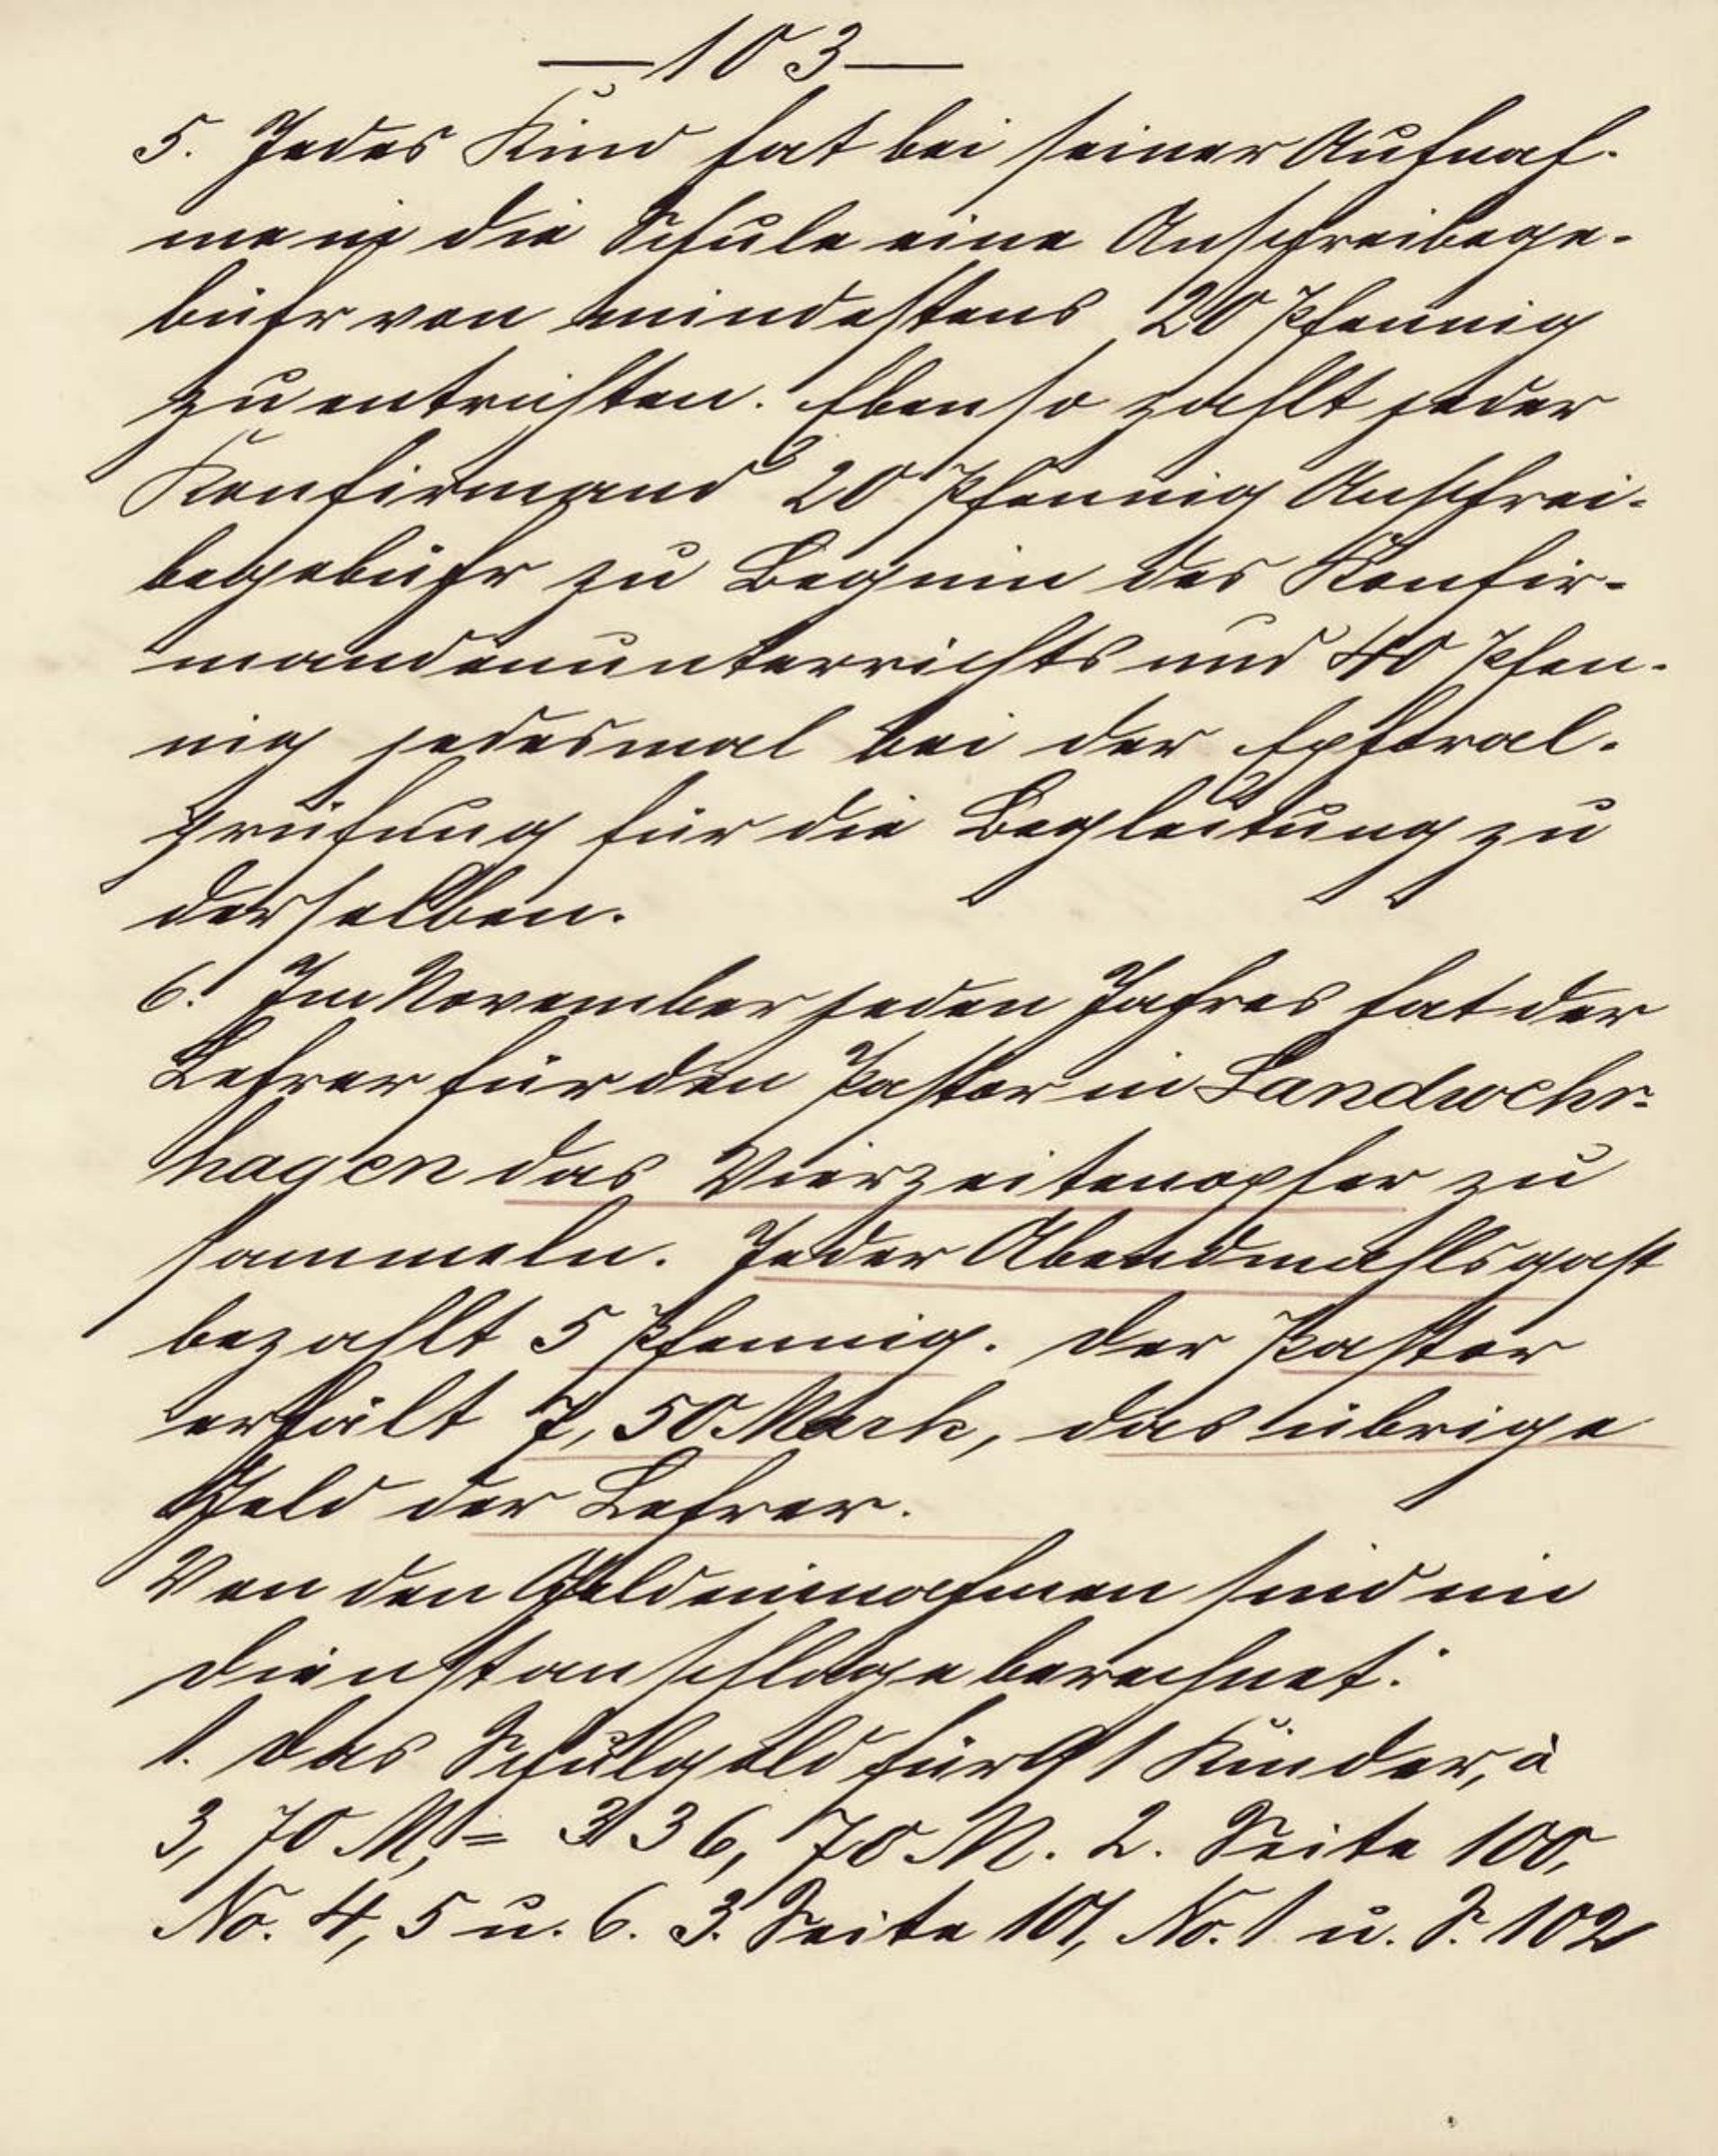 — 103 —
5. Jedes Kind hat bei seiner Aufnah-
me in die Schule eine Anschreibege-
bühr von mindestens 20 Pfennig
zu entrichten. Ebenso zahlt jeder
Konfirmand 20 Pfennig Anschrei-
begebühr zu Beginn des Konfir-
mandenunterrichts und 40 Pfen-
nig jedesmal bei der Ephoral-
prüfung für die Begleitung zu
derselben.
6. Im November jeden Jahres hat der
Lehrer für den Pastor in Landwehr-
hagen das Vierzeitenopfer zu
sammeln. Jeder Abendmahlsgast
bezahlt 5 Pfennig. Der Pastor
erhält 7,50 Mark, das übrige
Geld der Lehrer.
Von den Geldeinnahmen sind im
Dienstanschlage berechnet:
1. Das Schulgeld für 91 Kinder, à
3,70 M, = 336,70 M. 2. Seite 100,
No. 4, 5 u. 6. 3. Seite 101, No. 1 u. S. 102